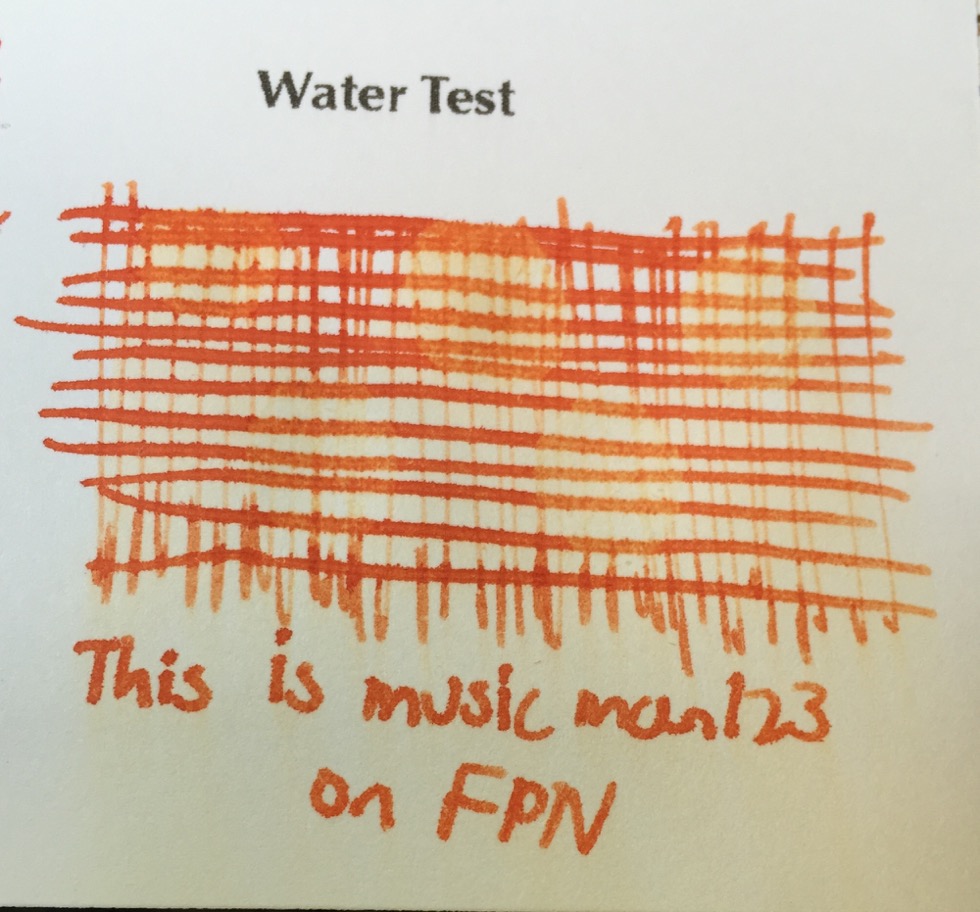 Water Test
This is music man123
on FPN